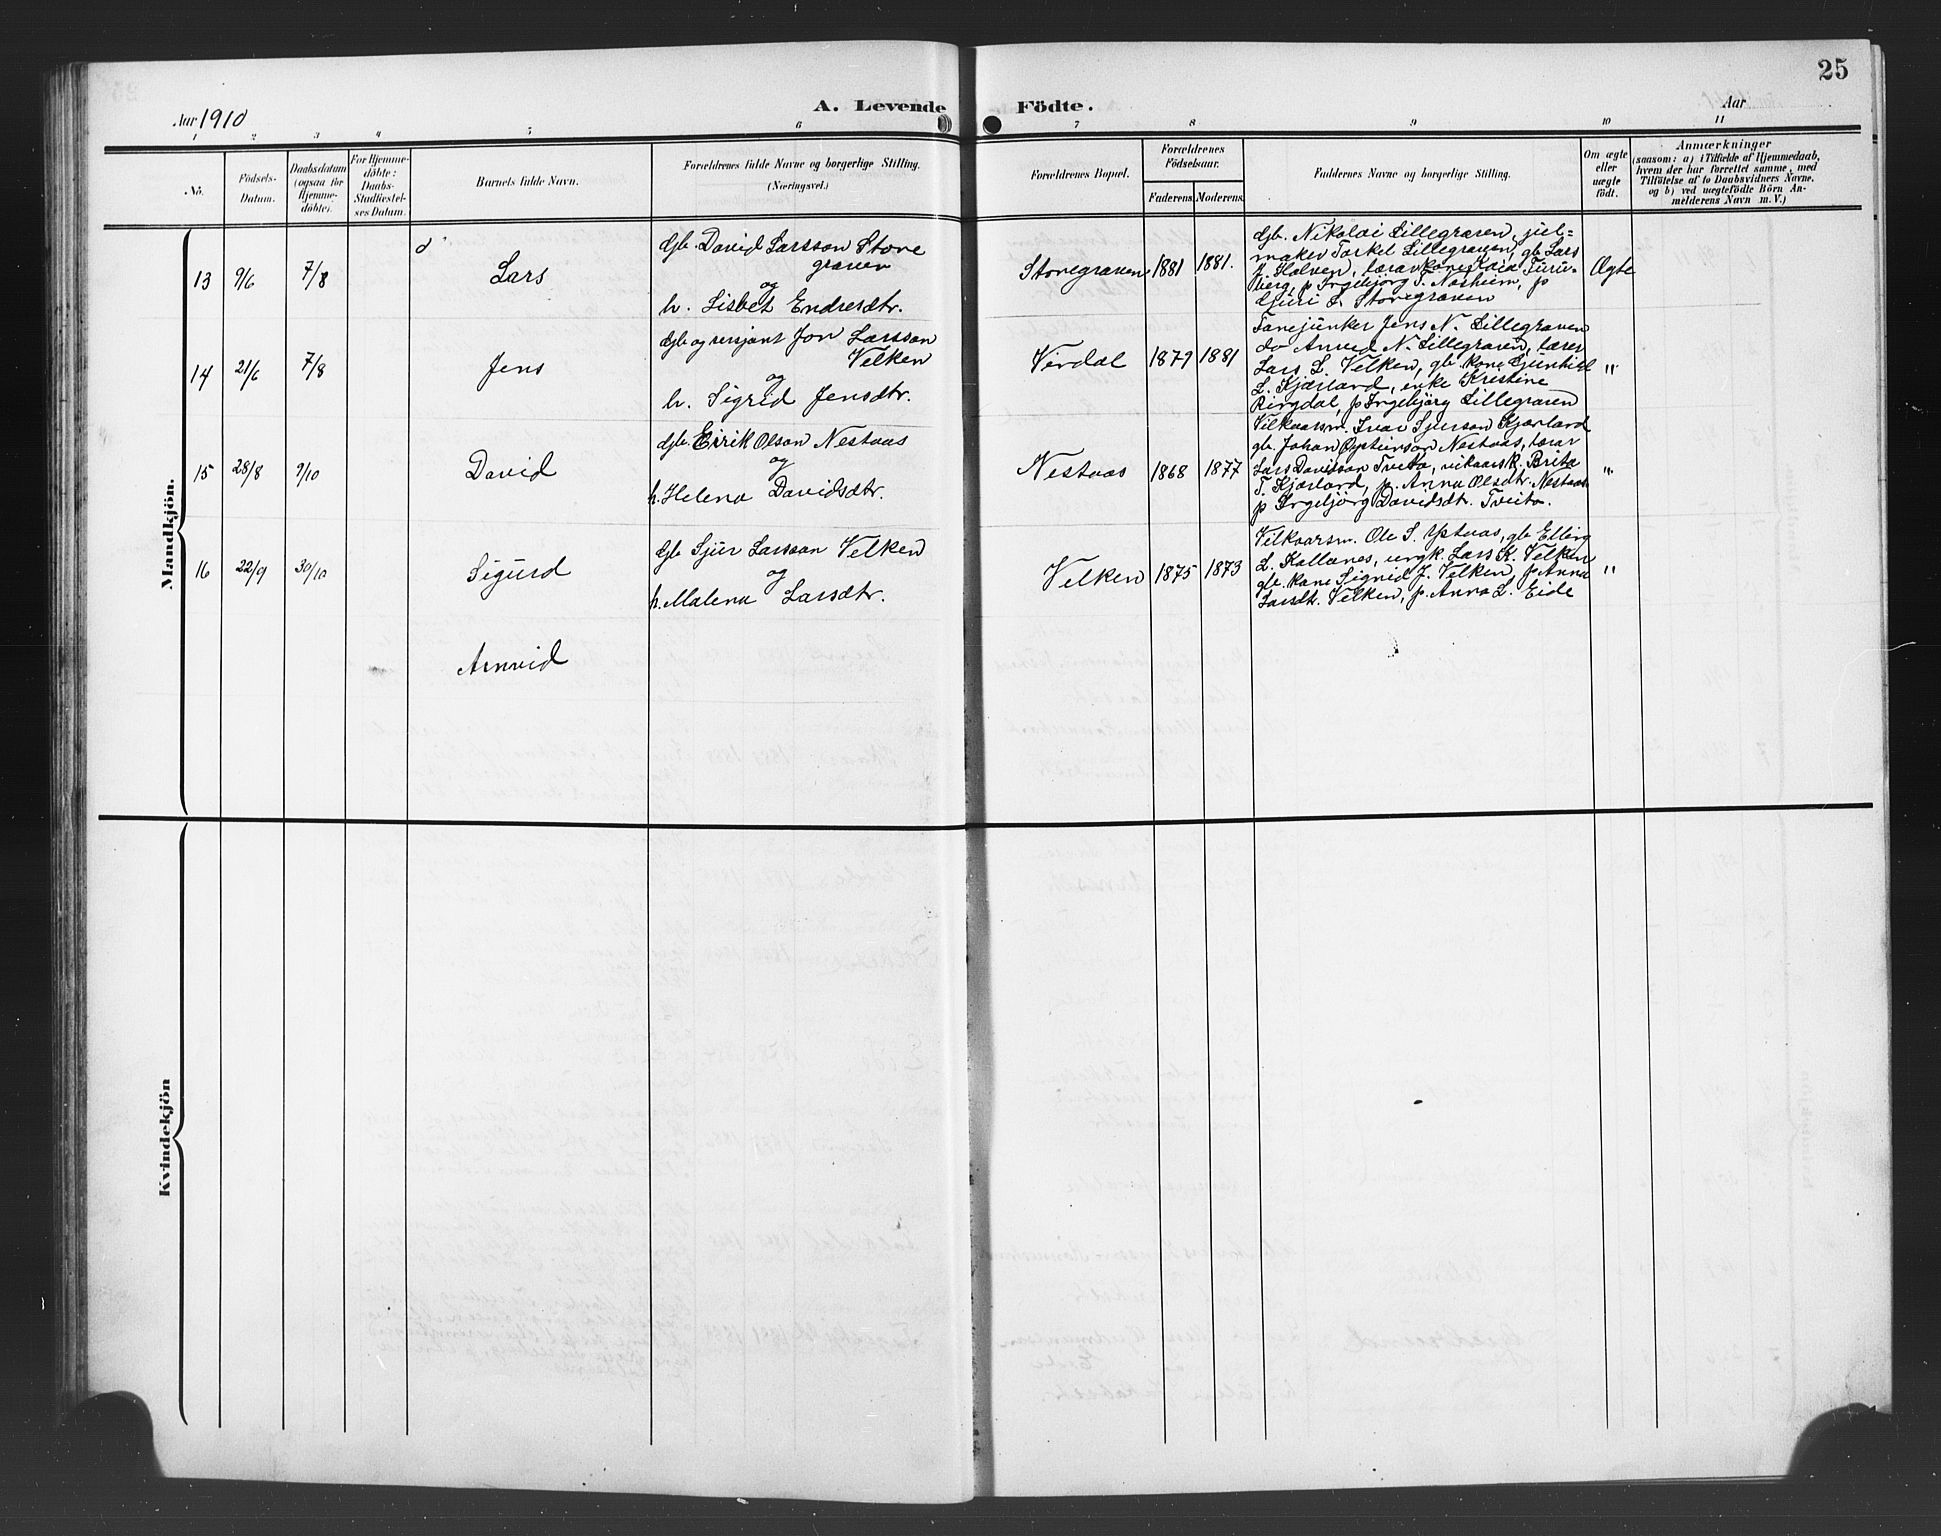 25
Aar 1910
A. Levende Födte.
Aar
1 2 3 4 5 6 7 8 9 10 11
Nö.
Födsels-
Datum.
Daabsdatum
(ogsaa for
Hjemme-
döbte).
For Hjemme-
döbte:
Daabs-
Stadfæstel-
ses Datum.
Barnets fulde Navn.
Forældrenes fulde Navne og borgerlige Stilling.
(Næringsvei.)
Forældrenes Bopæl.
Forældrenes
Födselsaar.
Faderens.
Moderens.
Faddernes Navne og borgerlige Stilling.
Om ægte
eller
uægte
födt.
Anmærkninger
(saasom: a) i Tilfælde af Hjemmedaab,
hvem der har forrettet samme, med
Tilföielse af to Daabsvidners Navne.
og b) ved uegtefödte Börn An-
melderens Navn m. V.)
Mandkjön.
13 9/6 7/8
Lars
Gb. David Larsson Store
graven
og
h. Lisbet Endresdtr.
Storegraven 1881 1881.
Gb. Nikolai Lillegraven, jul-
maker Torkel Lillegraven, gb Lars
J. Halven, lærarkone Kaia Furu-
berg, p Ingebjörg T. Næsheim, p
Guri L. Storegraven
Ægte
14 21/6 7/8
Jens
Gb og sersjant Jon Larsson
Velken
og
h. Sigrid Jensdtr.
Virdal 1879 1881
Fanejunker Jens N. Lillegraven
do Anved N. Lillegraven, lærer
Lars L. Velken, gb. kone Gunhild
L. Kjærland, enke Kristine
Ringdal, p Ingebjörg Lillegraven
"
15 28/8 9/10
David
Gb. Eirik Olson Nestaas
og
h. Helena Davidsdtr.
Nestaas 1868 1877
Vilkaarsm. Ivar Sjurson Kjærland
gb. Johan Öysteinson Nestaas, lærar
Lars Davidson Tveito, vikaarsk. Brita
T. Kjærland, p. Anna Olsdtr. Nestaas
p Ingebjörg Davidsdtr. Tveito.
"
16 22/9 30/10
Sigurd
Gb Sjur Larsson Velken
og
h. Malena Larsdtr.
Velken 1875 1873
Vilkaarsm. Ole S. Ystaas, gb Elling
L. Kollanes, ungk. Lars K. Velken
gb. kone Sigrid J. Velken, p. Anna
Larsdtr. Velken, p. Anna L. Eide
"
Arnvid
Kvindekjön